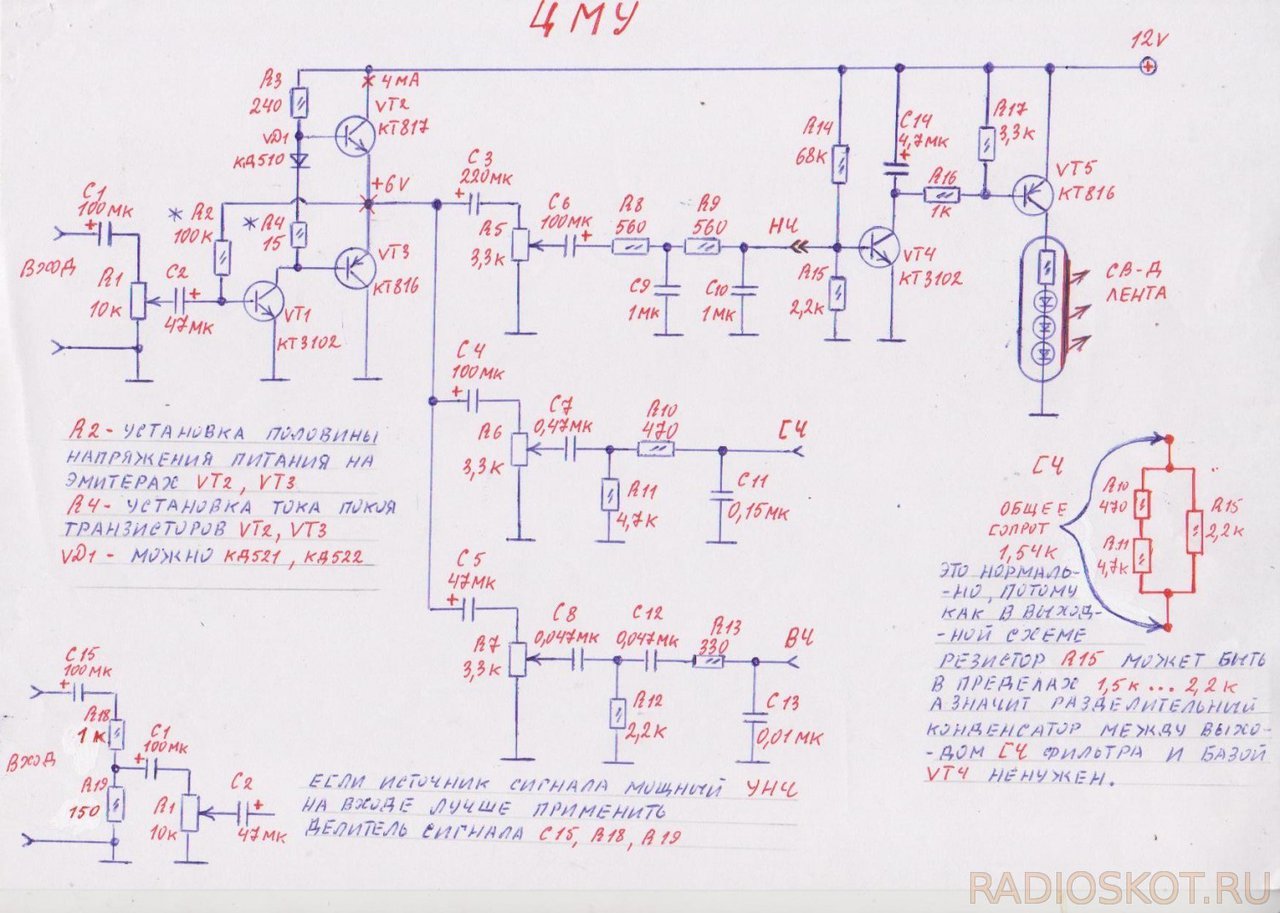 ЦМУ
12V
R3
240
4МА
VT2
КТ817
VD1
КД510
+6V
C1
100МК
ВХОД
R1
10К
* R2
100К
* R4
15
C2
47МК
VT1
КТ3102
VT3
КТ816
C3
220МК
R5
3,3К
C6
100МК
R8
560
R9
560
C9
1МК
C10
1МК
НЧ
R14
68К
R15
2,2К
VT4
КТ3102
C14
4,7МК
R16
1К
R17
3,3К
VT5
КТ816
СВ-Д
ЛЕНТА
C4
100МК
R6
3,3К
C7
0,47МК
R10
470
R11
4,7К
C11
0,15МК
СЧ
C5
47МК
R7
3,3К
C8
0,047МК
C12
0,047МК
R13
330
R12
2,2К
C13
0,01МК
ВЧ
R2 - УСТАНОВКА ПОЛОВИНЫ
НАПРЯЖЕНИЯ ПИТАНИЯ НА
ЭМИТЕРАХ VT2, VT3
R4 - УСТАНОВКА ТОКА ПОКОЯ
ТРАНЗИСТОРОВ VT2, VT3
VD1 - МОЖНО КД521, КД522
C15
100МК
R18
1К
ВХОД
R19
150
C1
100МК
R1
10К
C2
47МК
ЕСЛИ ИСТОЧНИК СИГНАЛА МОЩНЫЙ УНЧ
НА ВХОДЕ ЛУЧШЕ ПРИМЕНИТЬ
ДЕЛИТЕЛЬ СИГНАЛА C15, R18, R19
СЧ
ОБЩЕЕ
СОПРОТ
1,54К
R10
470
R11
4,7К
R15
2,2К
ЭТО НОРМАЛЬ-
-НО, ПОТОМУ
КАК В ВЫХОД-
-НОЙ СХЕМЕ
РЕЗИСТОР R15 МОЖЕТ БЫТЬ
В ПРЕДЕЛАХ 1,5К ... 2,2К
А ЗНАЧИТ РАЗДЕЛИТЕЛЬНЫЙ
КОНДЕНСАТОР МЕЖДУ ВЫХО-
-ДОМ СЧ ФИЛЬТРА И БАЗОЙ
VT4 НЕНУЖЕН.
RADIOSKOT.RU